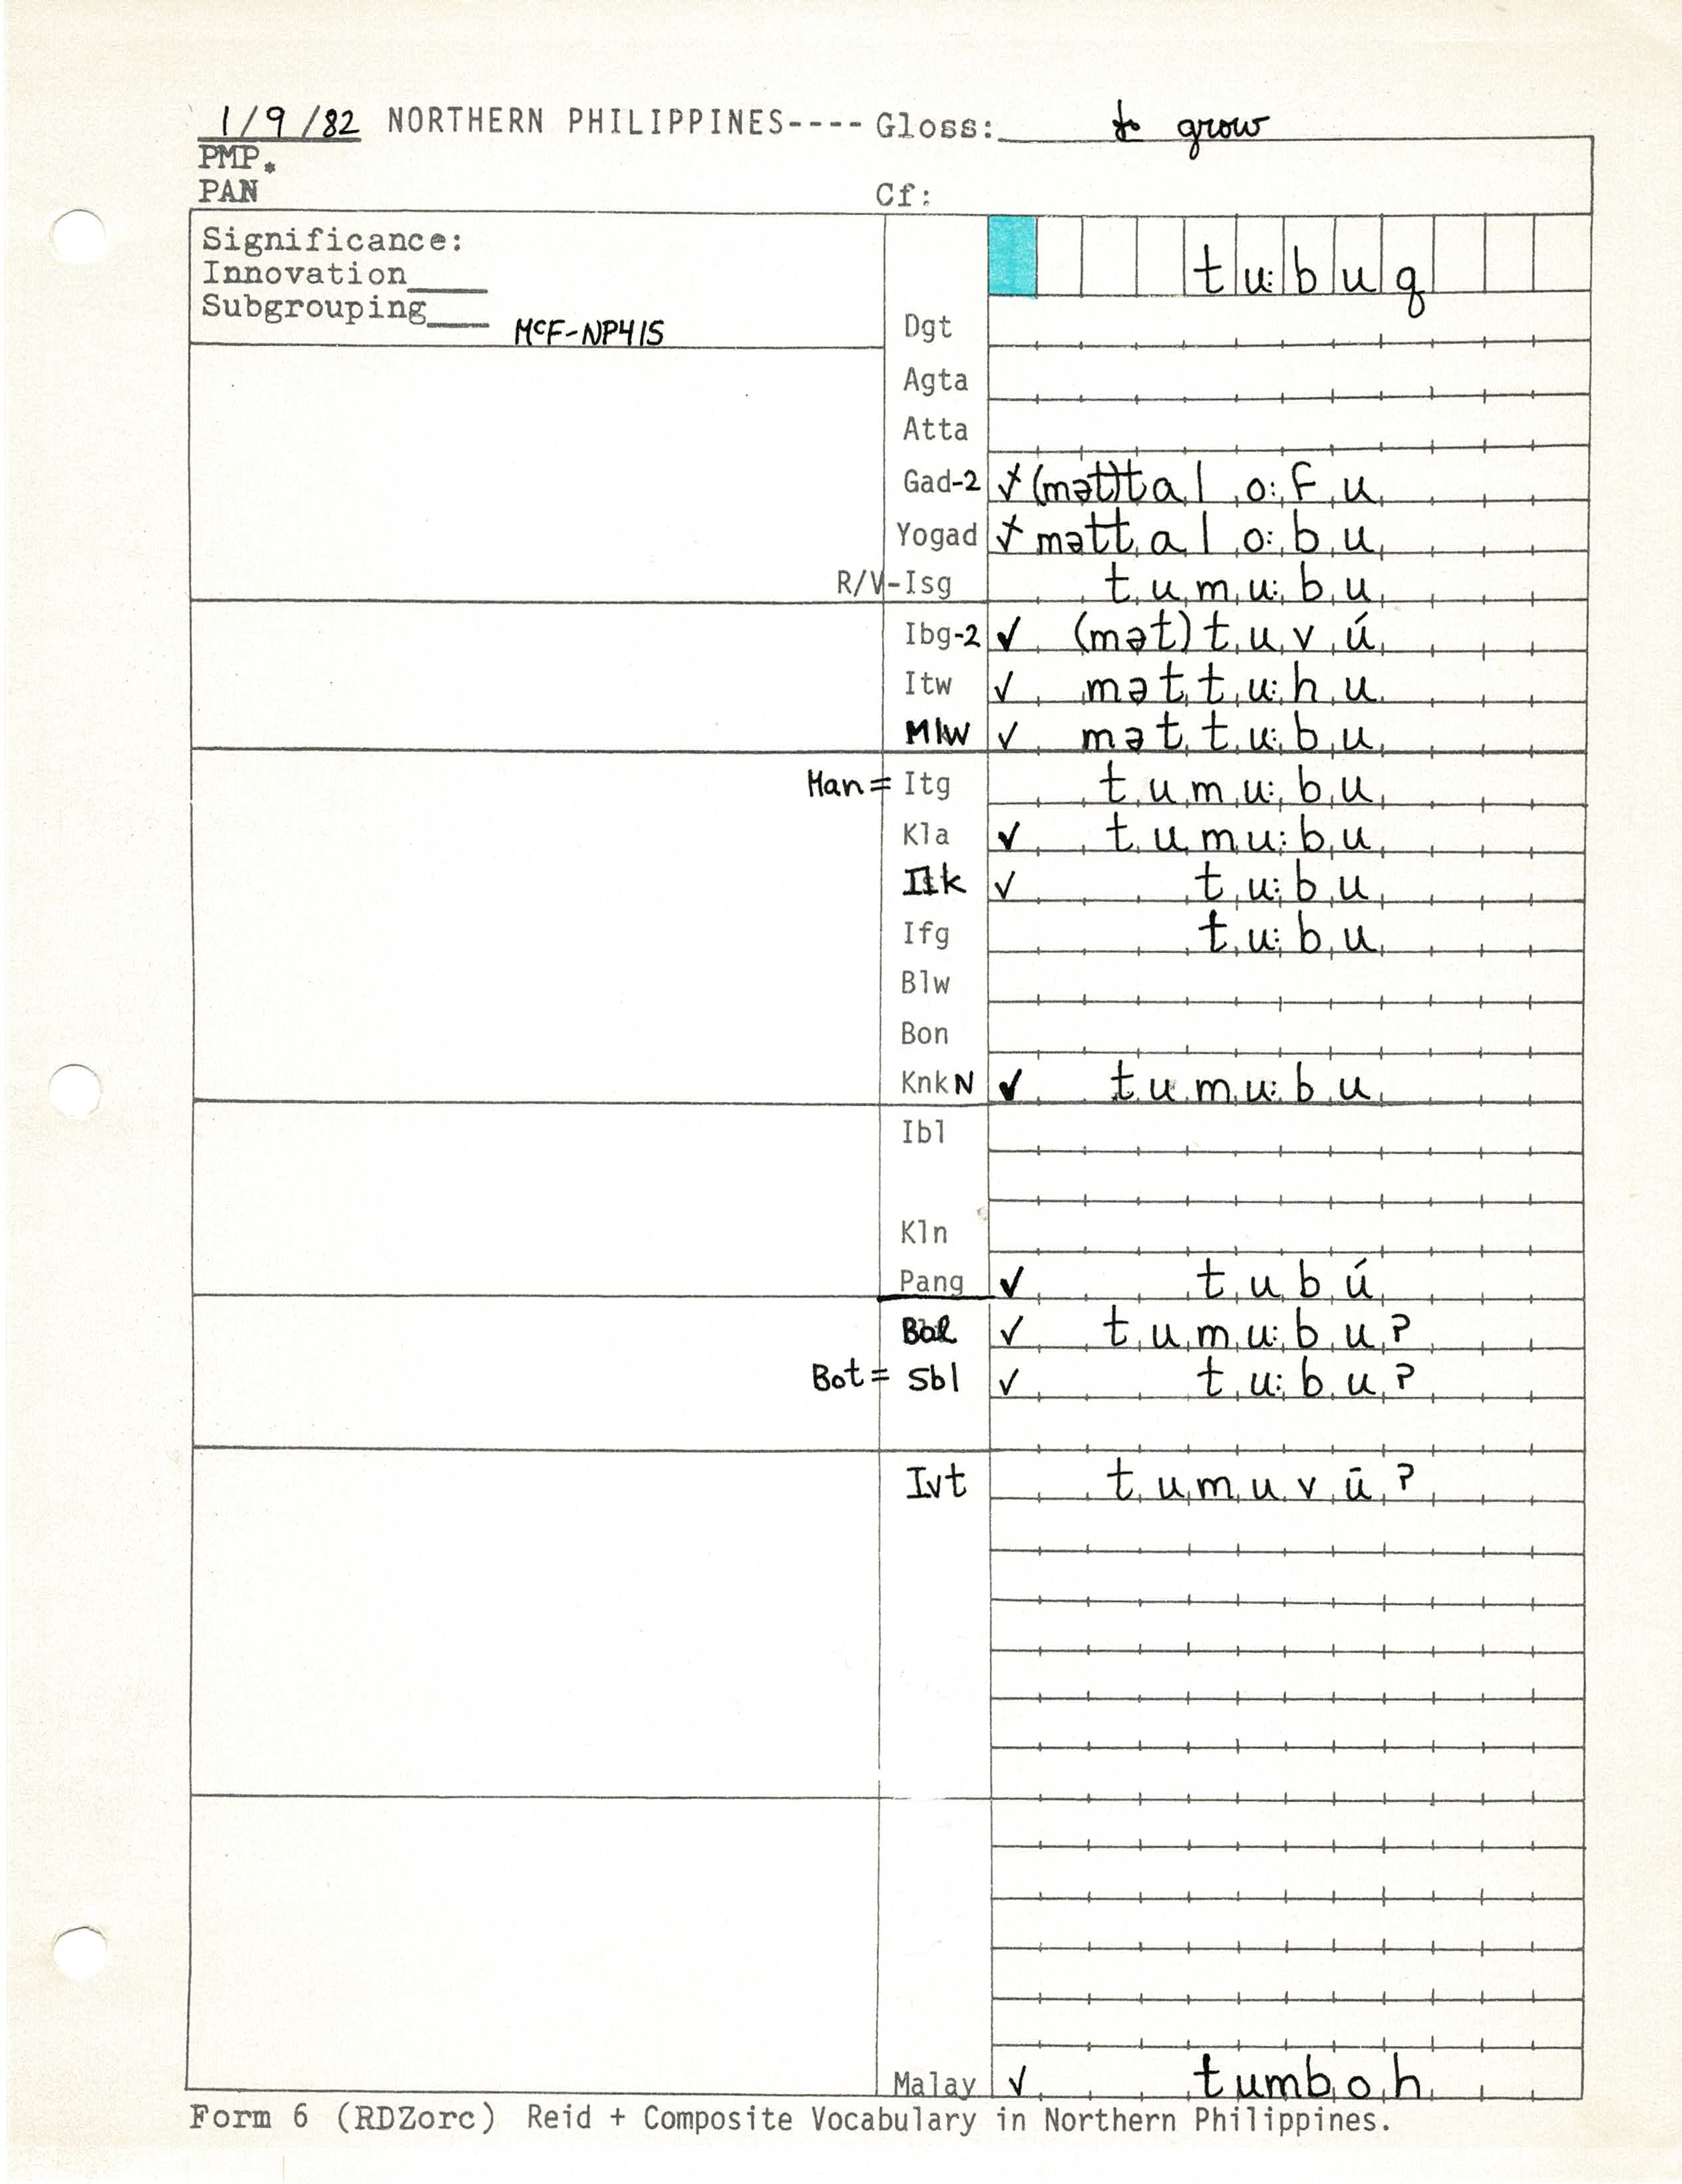 1/9/82 NORTHERN PHILIPPINES---- Gloss: to grow
PMP.
PAN Cf:
Significance:
Innovation____
Subgrouping___ McF-NP415
tu:buq
Dgt
Agta
Atta
Gad-2 ✗ (mət)talo:fu
Yogad ✗ məttalo:bu
R/V-Isg tumu:bu
Ibg-2 ✓ (mət)tuvú
Itw ✓ məttu:hu
Mlw ✓ məttu:bu
Man = Itg tumu:bu
Kla ✓ tumu:bu
Ilk ✓ tu:bu
Ifg tu:bu
Blw
Bon
KnkN ✓ tumu:bu
Ibl
Kln
Pang ✓ tubú
Bol ✓ tumu:bu?
Bot = Sbl ✓ tu:bu?
Ivt tumuvū?
Malay ✓ tumboh
Form 6 (RDZorc) Reid + Composite Vocabulary in Northern Philippines.